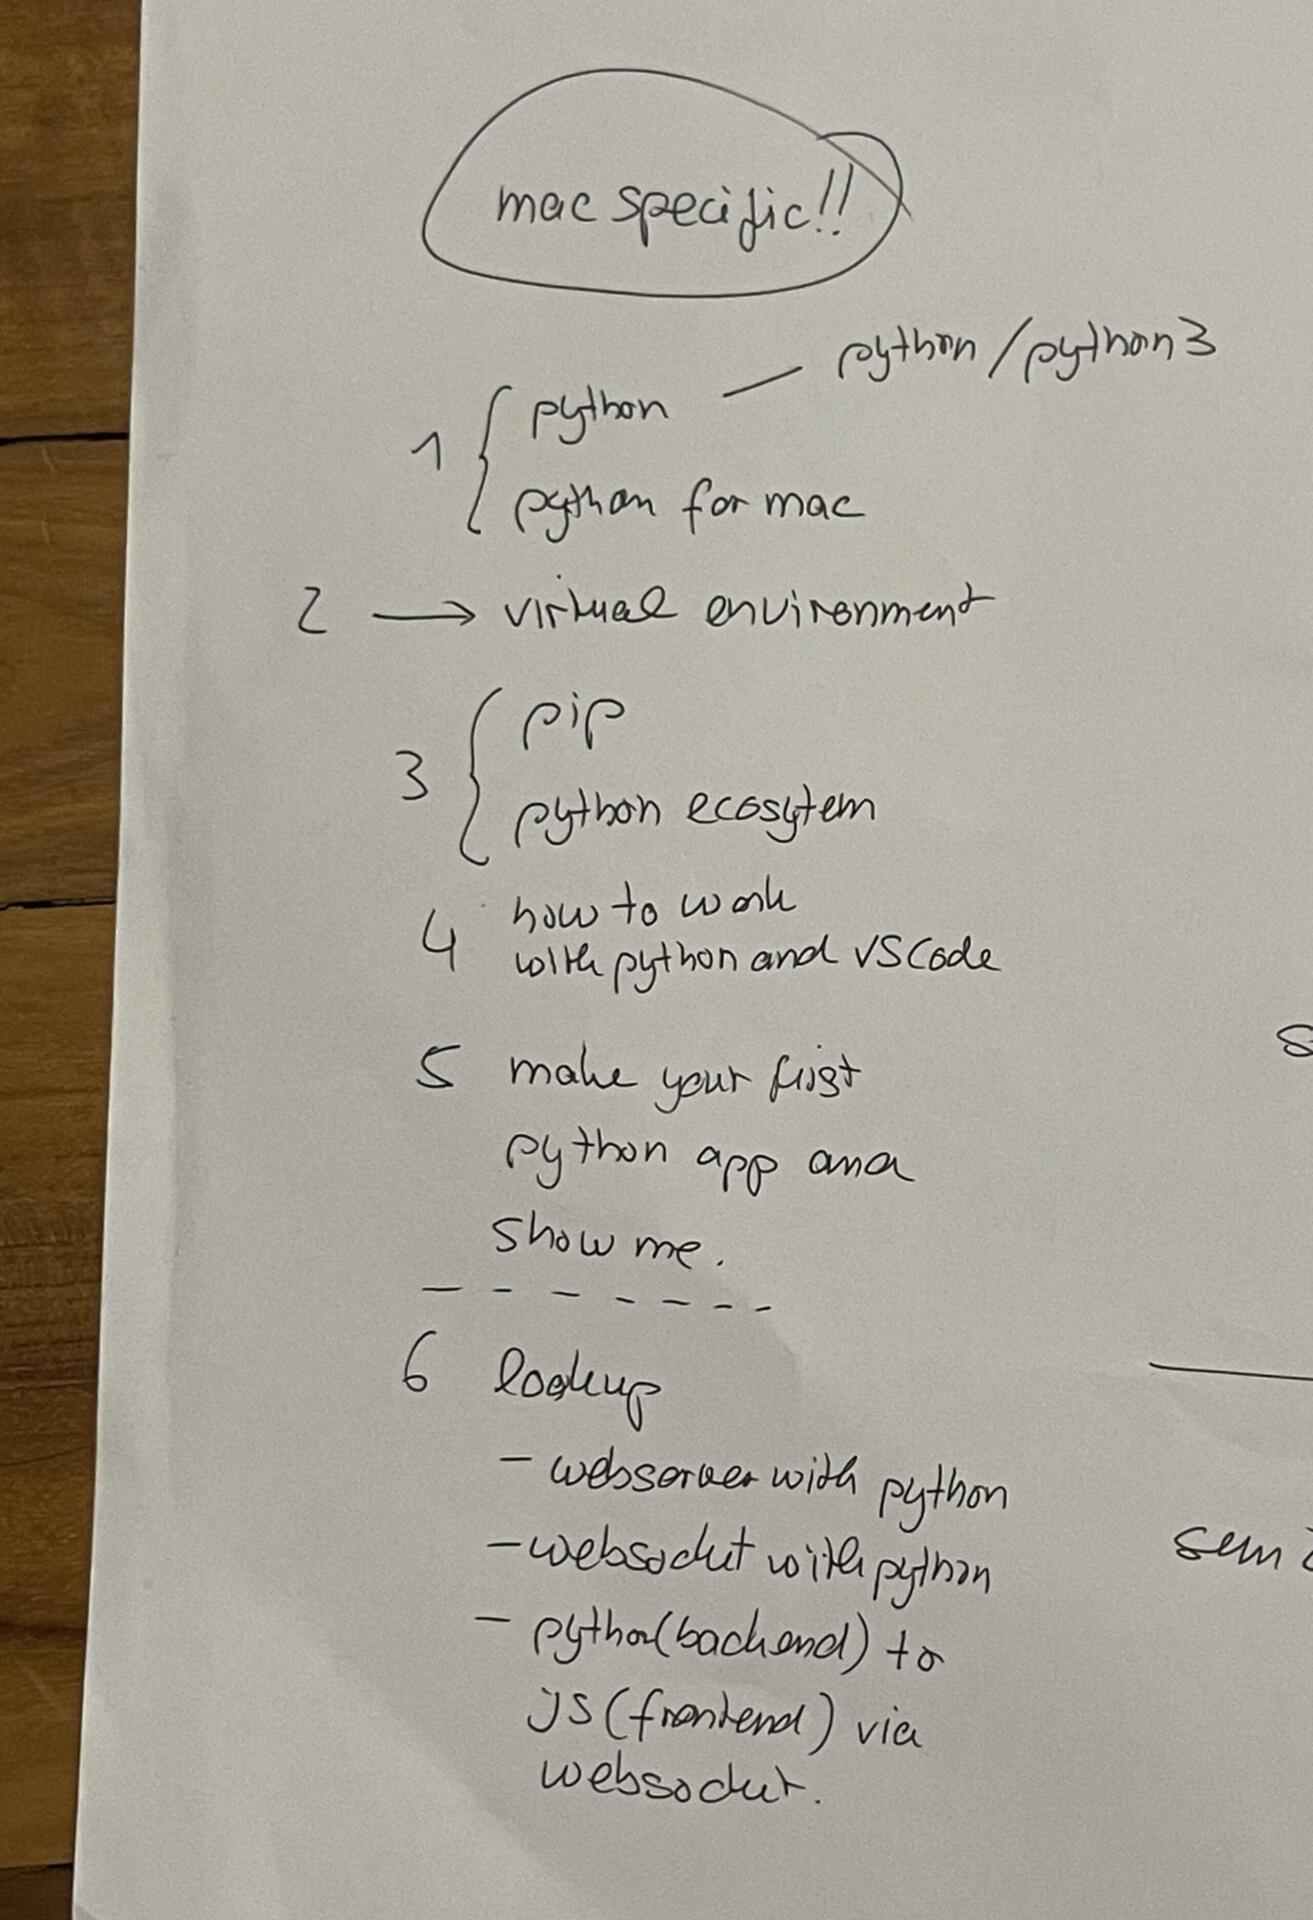 mac specific!!
python / python3
1 python
python for mac
2 → virtual environment
3 pip
python ecosytem
4 how to work
with python and VSCode
5 make your first
python app and
show me.
6 lookup
- webserver with python
- websocket with python
- python (backend) to
JS (frontend) via
websocket.